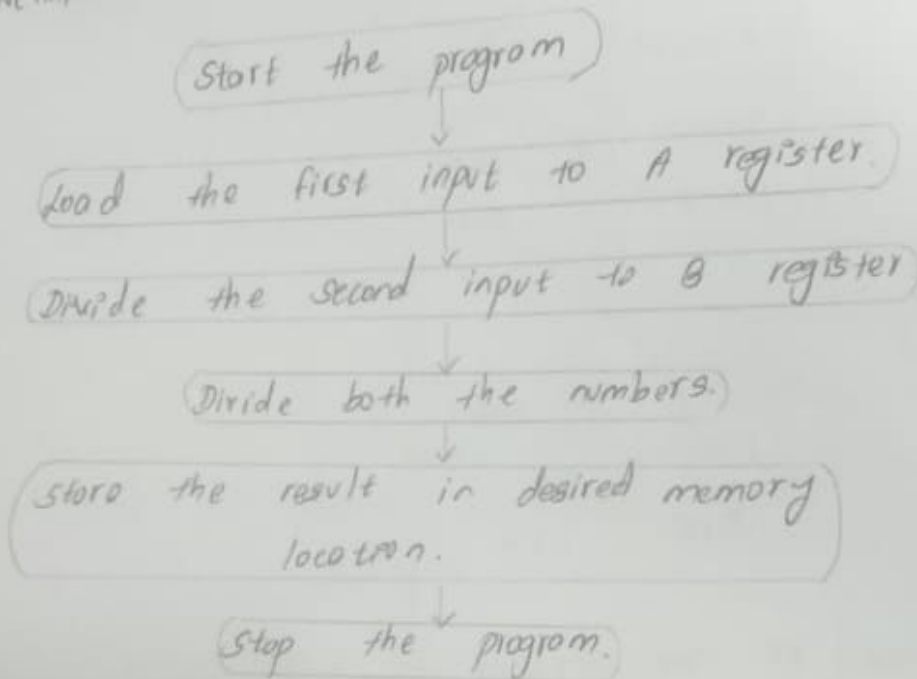 Start the program
Load the first input to A register.
Divide the second input to B register
Divide both the numbers.
Store the result in desired memory
location.
Stop the program.